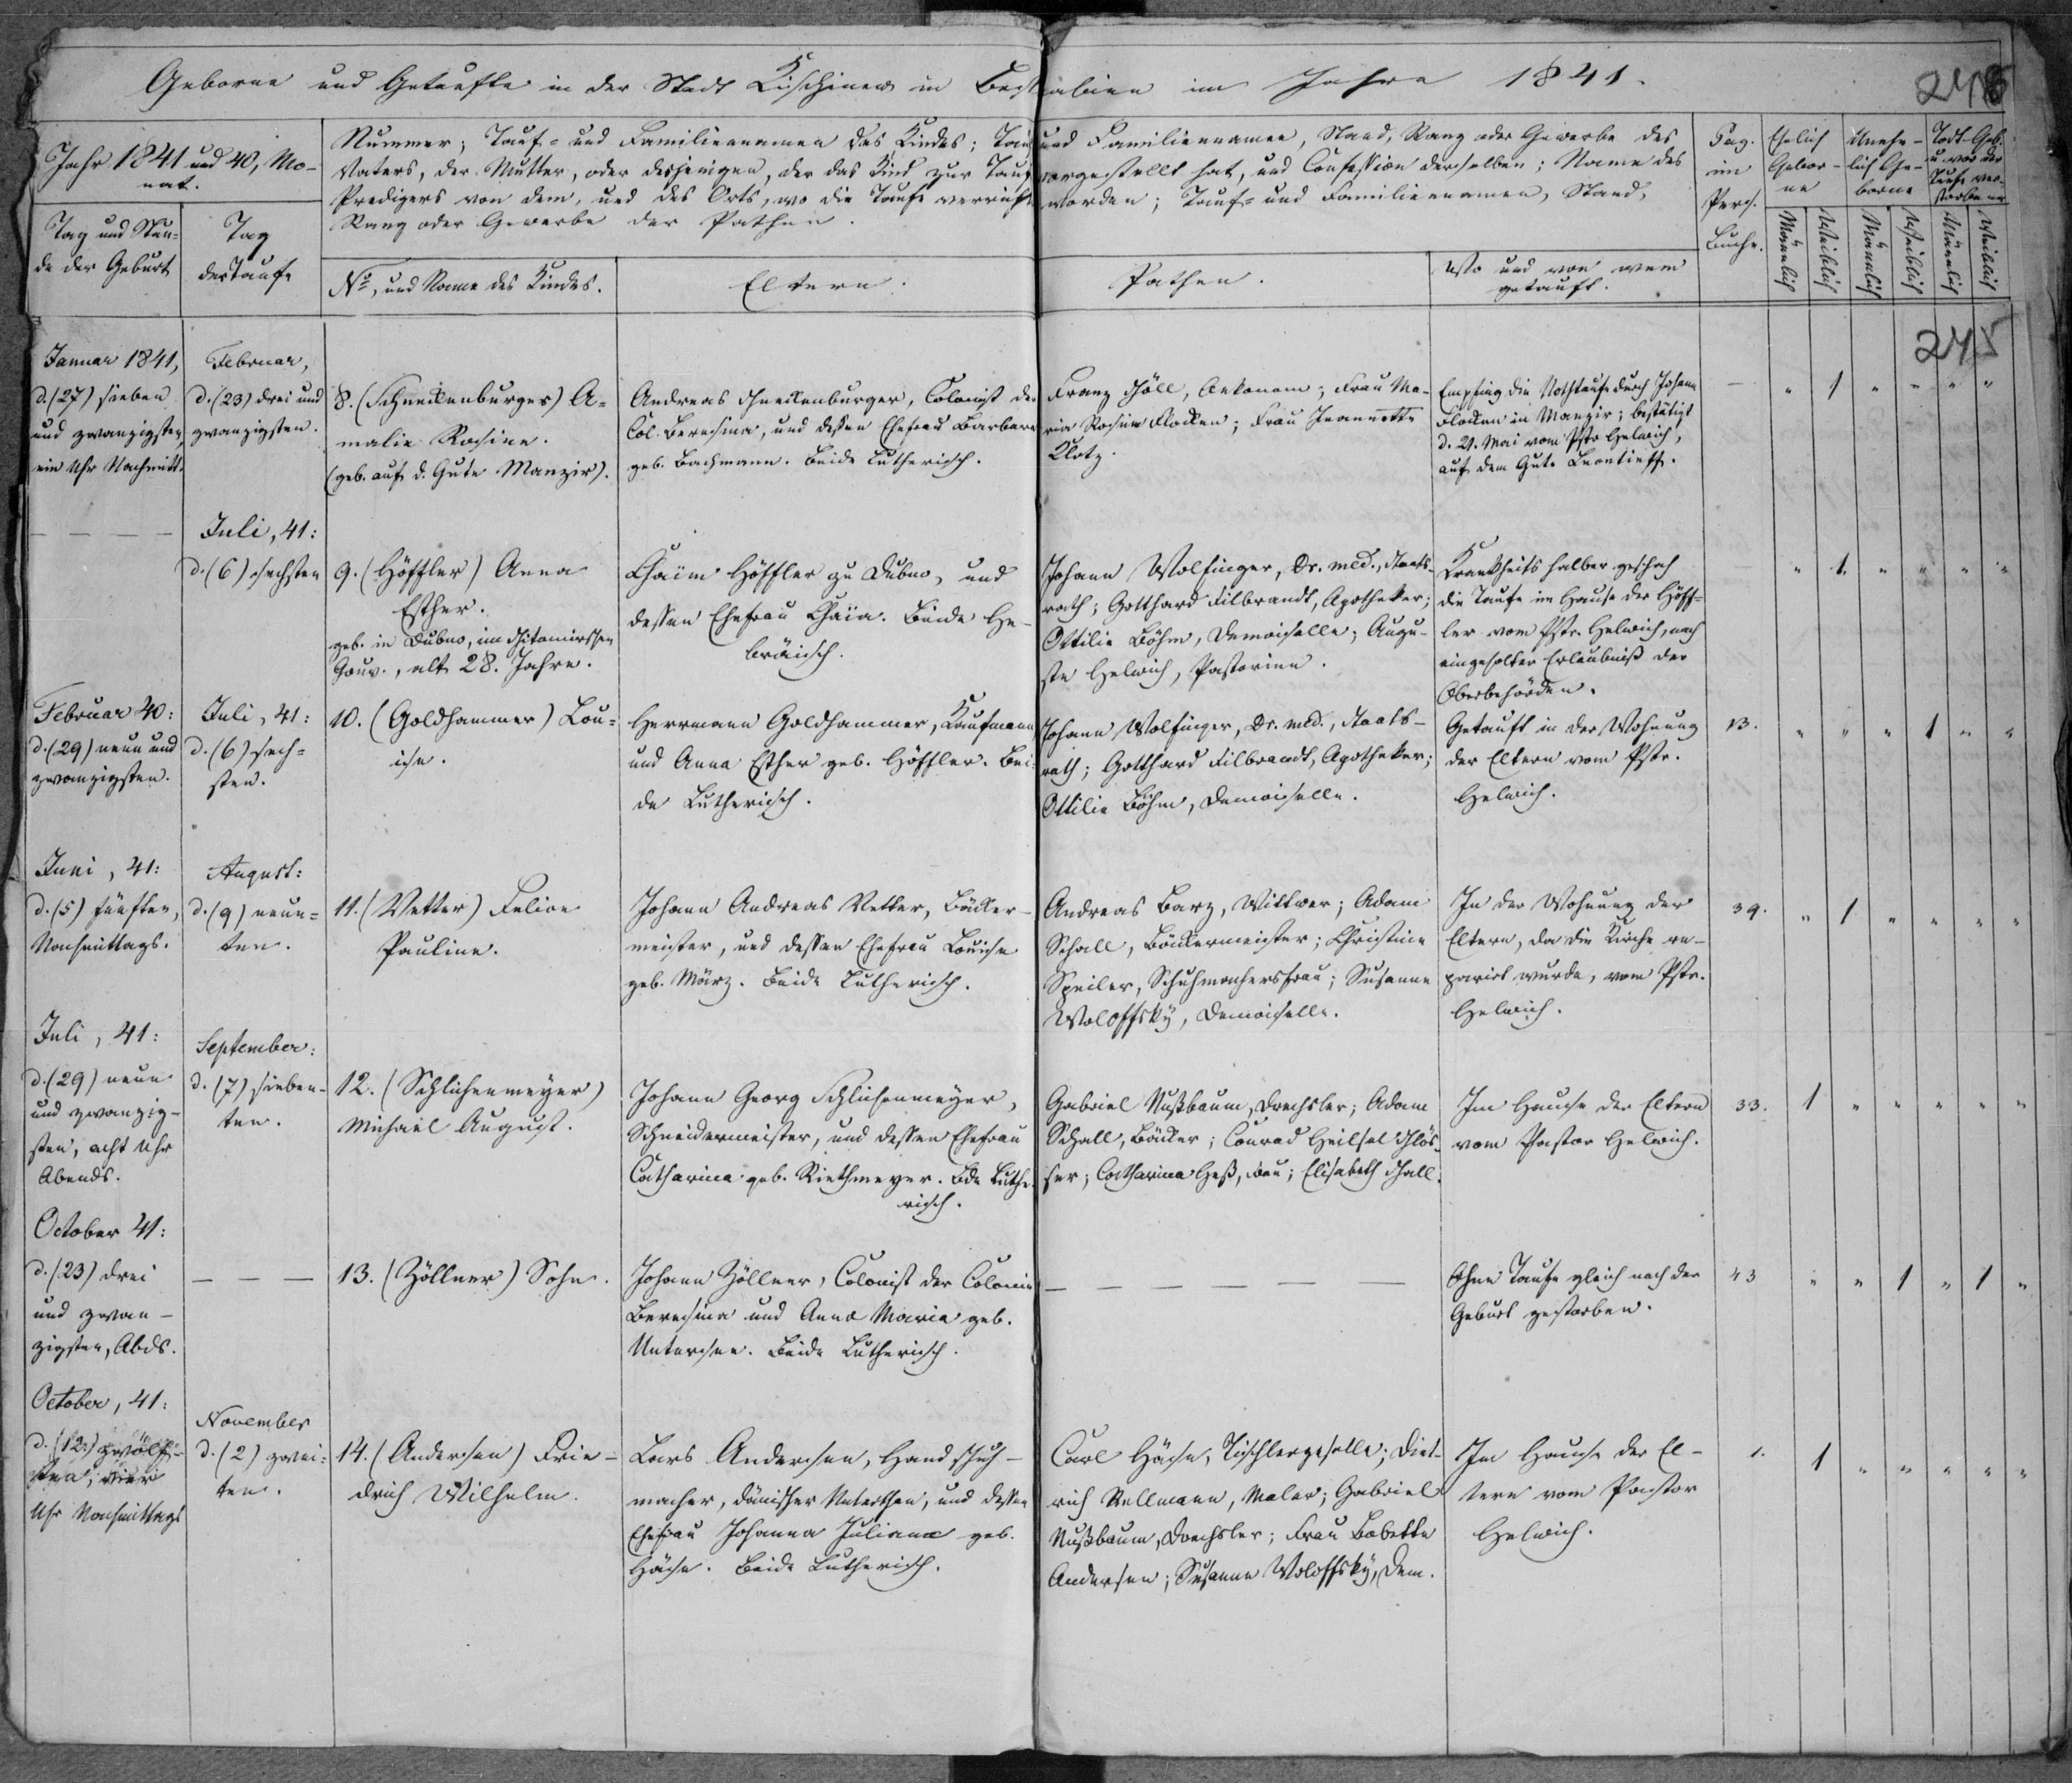 Geborne und Getaufte in der Stadt Kischinew in Bessarabien im Jahre 1841.
245
Jahr 1841 und 40, Mo-
nat.
Nummer; Tauf- und Familiennamen des Kindes; Tauf und Familiennamen, Stand, Rang oder Gewerbe des
Vaters, der Mutter, oder desjenigen, der das Kind zur Taufe vorgestellt hat, und Confession derselben; Name des
Predigers von dem, und des Orts, wo die Taufe verricht worden; Tauf- und Familiennamen, Stand,
Rang oder Gewerbe der Pathen.
Pag.
im
Pers.
Buche.
Ehelich
Gebor-
ne
Unehe-
lich Ge-
borne
Todt-Geb.
u. vor der
Taufe ver-
storbene
Tag und Stun-
de der Geburt
Tag
der Taufe
No, und Name des Kindes.
Eltern.
Pathen.
Wo und von wem
getauft.
Männlich
Weiblich
Männlich
Weiblich
Männlich
Weiblich
245
Januar 1841,
d. (27) sieben
und zwanzigsten
ein Uhr Nachmitt.
Februar,
d. (23) drei und
zwanzigsten.
8. (Schneckenburger) A-
malie Rosine.
(geb. auf d. Gute Manzir).
Andreas Schneckenburger, Colonist der
Col. Beresina, und dessen Ehefrau Barbara
geb. Bachmann. Beide Lutherisch.
Franz Schöll, Oekonom; Frau Ma-
ria Rosine Flocken; Frau Jeannette
Klotz.
Empfing die Nothtaufe durch Johann
Flocken in Manzir; bestätigt
d. 21. Mai vom Pstr Helwich,
auf dem Gute Leontieff.
— " 1 " " " "
— — —
Juli, 41:
d. (6) sechsten
9. (Höffler) Anna
Esther.
geb. in Dubno, im Schitomirschen
Gouv., alt 28. Jahre.
Chaim Höffler zu Dubno, und
dessen Ehefrau Chaia. Beide He-
bräisch.
Johann Wolfinger, Dr. med., Staats-
rath; Gotthard Filbrandt, Apotheker;
Ottilie Böhm, Demoiselle; Augu-
ste Helwich, Pastorinn.
Krankheits halber geschah
die Taufe im Hause der Höff-
ler vom Pstr. Helwich, nach
eingeholter Erlaubniß der
Oberbehörden.
" 1 " " " "
Februar 40:
d. (29) neun und
zwanzigsten.
Juli, 41:
d. (6) sech-
sten.
10. (Goldhammer) Lou-
ise.
Herrmann Goldhammer, Kaufmann
und Anna Esther geb. Höffler. Bei-
de Lutherisch.
Johann Wolfinger, Dr. med., Staats-
rath; Gotthard Filbrandt, Apotheker;
Ottilie Böhm, Demoiselle.
Getauft in der Wohnung
der Eltern vom Pstr.
Helwich.
13. " " " 1 " "
Juni, 41:
d. (5) fünften,
Nachmittags.
August:
d. (9) neun-
ten.
11. (Vetter) Felice
Pauline.
Johann Andreas Vetter, Bäcker-
meister, und dessen Ehefrau Louise
geb. März. Beide Lutherisch.
Andreas Barz, Wittwer; Adam
Schall, Bäckermeister; Christine
Speiler, Schuhmachersfrau; Susanne
Woloffsky, Demoiselle.
In der Wohnung der
Eltern, da die Kirche re-
parirt wurde, vom Pstr.
Helwich.
39. " 1 " " " "
Juli, 41:
d. (29) neun
und zwanzig-
sten, acht Uhr
Abends.
September:
d. (7) sieben-
ten.
12. (Schlichenmeyer)
Michael August.
Johann Georg Schlichenmeyer,
Schneidermeister, und dessen Ehefrau
Catharina geb. Riethmeyer. Bde Luthe-
risch.
Gabriel Nußbaum, Drechsler; Adam
Schall, Bäcker; Conrad Heilsel Schlös-
ser; Catharina Heß, Frau; Elisabeth Schall.
Im Hause der Eltern
vom Pastor Helwich.
33. 1 " " " " "
October 41:
d. (23) drei
und zwan-
zigsten, Abds.
— — —
13. (Zöllner) Sohn.
Johann Zöllner, Colonist der Colonie
Beresina und Anna Maria geb.
Untersee. Beide Lutherisch.
— — — — — —
Ohne Taufe gleich nach der
Geburt gestorben.
43 " " 1 " 1 "
October, 41:
d. (12.) zwölf-
ten, vier
Uhr Nachmittags
November
d. (2) zwei-
ten.
14. (Andersen) Frie-
drich Wilhelm.
Lars Andersen, Handschuh-
macher, dänischer Unterthan, und dessen
Ehefrau Johanna Juliane geb.
Häse. Beide Lutherisch.
Carl Häse, Tischlergeselle; Diet-
rich Rellmann, Maler; Gabriel
Nußbaum, Drechsler; Frau Babette
Andersen; Susanne Woloffsky, Dem.
Im Hause der El-
tern vom Pastor
Helwich.
1. 1 " " " " "